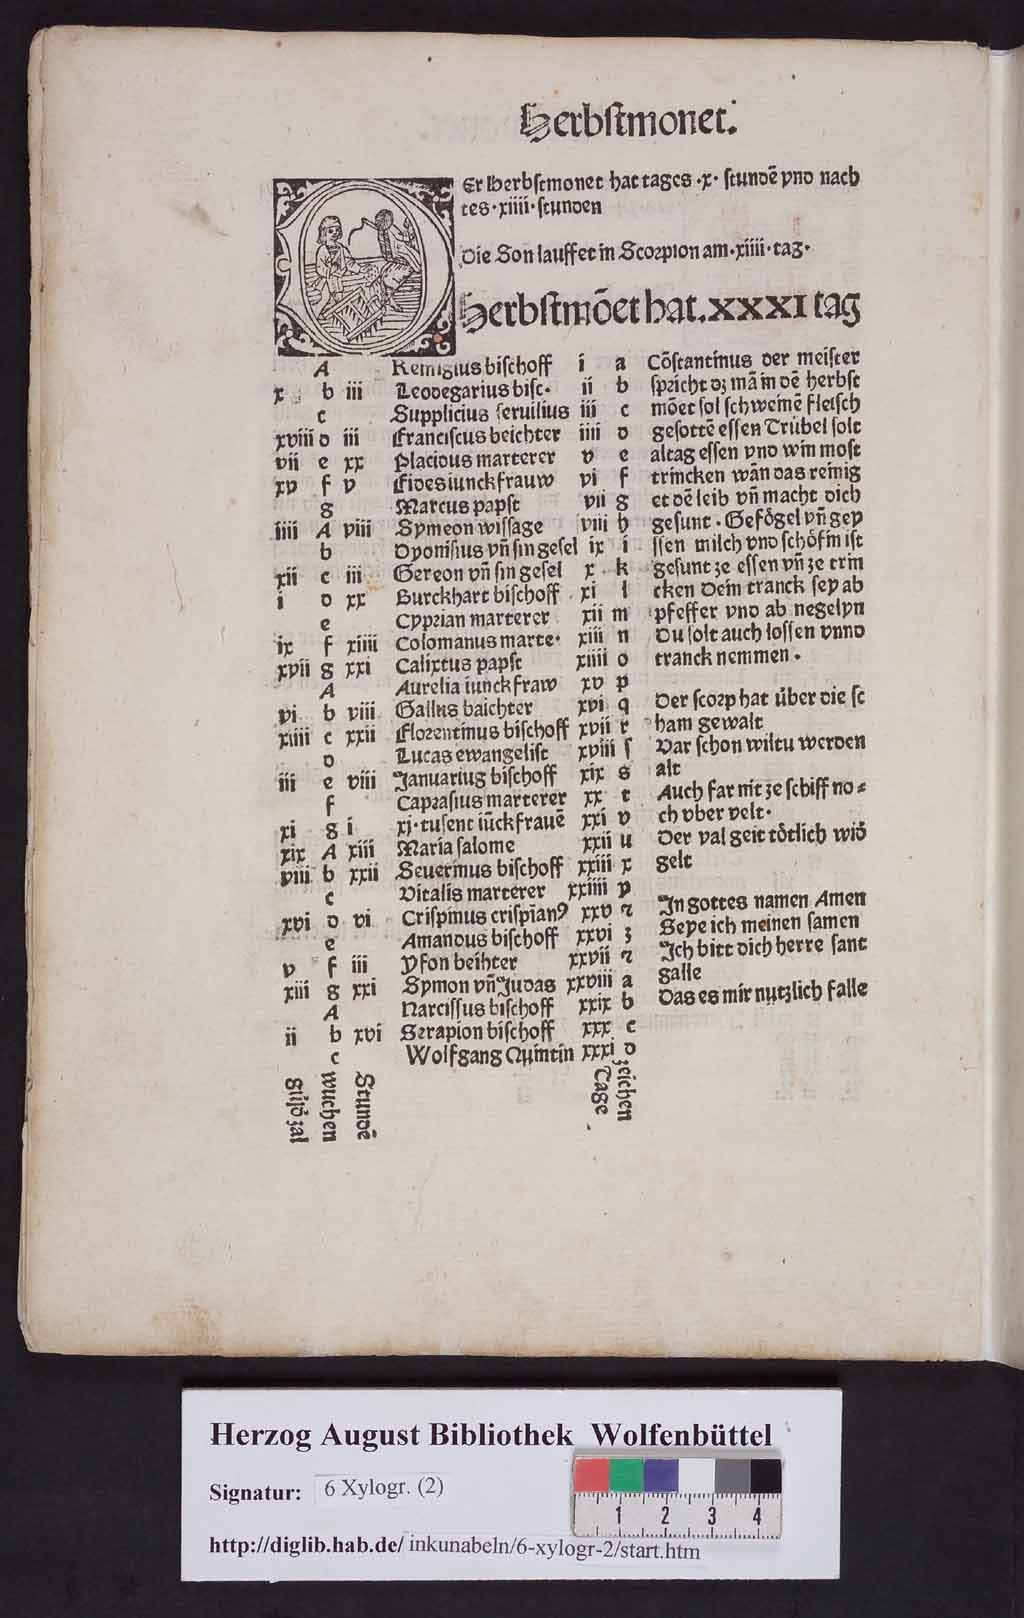 Herbſtmonet.
Er Herbſtmonet hat tages .x. ſtundē vnd nach
tes .xiiii. ſtunden
Die Son lauffet in Scorpion am .xiiii. tag.
Herbſtmōet hat. XXXI tag
A Remigius biſchoff i a
x b iii Leodegarius biſc. ii b
c Supplicius ſeruilius iii c
xviii d iii Franciſcus beichter iiii d
vii e xx Placidus marterer v e
xv f v Fides iunckfrauw vi f
g Marcus papſt vii g
iiii A viii Symeon wiſſage viii h
b Dyoniſius vñ ſin geſel ix i
xii c iii Gereon vñ ſin geſel x k
i d xx Burckhart biſchoff xi l
e Cyprian marterer xii m
ix f xiiii Colomanus marte. xiii n
xvii g xxi Calixtus papſt xiiii o
A Aurelia iunckfraw xv p
vi b viii Gallus baichter xvi q
xiiii c xxii Florentinus biſchoff xvii r
d Lucas ewangeliſt xviii ſ
iii e viii Januarius biſchoff xix s
f Capraſius marterer xx t
xi g i xj. tuſent iūckfrauē xxi v
xix A xiii Maria ſalome xxii u
viii b xxii Seuerinus biſchoff xxiii x
c Vitalis marterer xxiiii y
xvi d vi Criſpinus criſpianꝰ xxv ꝛ
e Amandus biſchoff xxvi z
v f iii Yfon beihter xxvii ꝛ
xiii g xxi Symon vñ Judas xxviii a
A Narciſſus biſchoff xxix b
ii b xvi Serapion biſchoff xxx c
c Wolfgang Quintin xxxi d
wuchen
Stundē
Tage
zeichen
Cōſtantinus der meiſter
ſpricht dz mā in dē herbſt
mōet ſol ſchweinē fleiſch
geſottē eſſen Trübel ſolt
altag eſſen vnd win moſt
trincken wān das reinig
et dē leib vñ macht dich
geſunt. Geföͤgel vñ gey
ſſen milch vnd ſchöfin iſt
geſunt ze eſſen vñ ze trin
cken Dein tranck ſey ab
pfeffer vnd ab negelyn
Du ſolt auch loſſen vnnd
tranck nemmen.
Der ſcorp hat über die ſc
ham gewalt
Var ſchon wiltu werden
alt
Auch far nit ze ſchiff no⸗
ch vber velt.
Der val geit tötlich wid
gelt
In gottes namen Amen
Seye ich meinen ſamen
Ich bitt dich herre ſant
galle
Das es mir nutzlich falle
Herzog August Bibliothek Wolfenbüttel
Signatur: 6 Xylogr. (2)
1 2 3 4
http://diglib.hab.de/inkunabeln/6-xylogr-2/start.htm